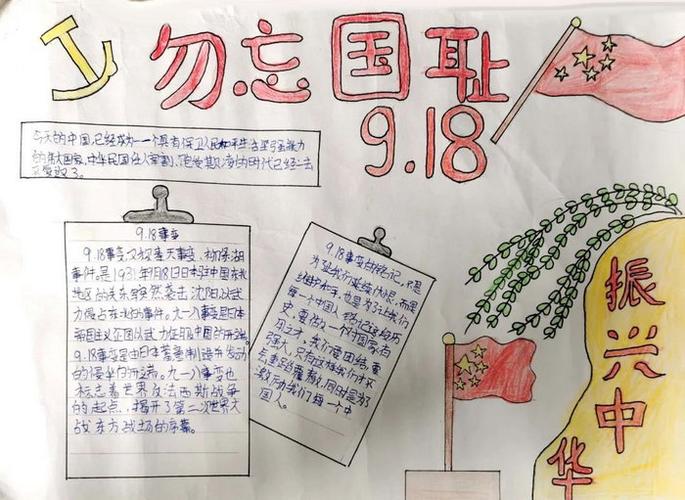 勿忘国耻
9.18
今天的中国,已经成为一个具有保卫人民和平生活坚强能力
的伟大国家,中华民国任人宰割、饱受欺凌的时代已经一去
不复返了。
9.18事变
9.18事变又称奉天事变、柳条湖
事件,是1931年9月18日日本驻中国东北
地区的关东军突然袭击沈阳,以武
力侵占东北的事件。九一八事变是日本
帝国主义企图以武力征服中国的开端。
9.18事变是由日本蓄意制造并发动
的侵华的开端。九一八事变也
标志着世界反法西斯战争
的起点,揭开了第二次世界大
战东方战场的序幕。
9.18事变的铭记,不是
为了我们延续仇恨,而是
维护和平,也是为了让我们
每一个中国人铭记这历
史,要做一个对国家有
用之才,我们要团结,要
强大,只有这样我们才不
会重蹈覆辙,同时是
激励我们每一个中
国人。
振兴中华